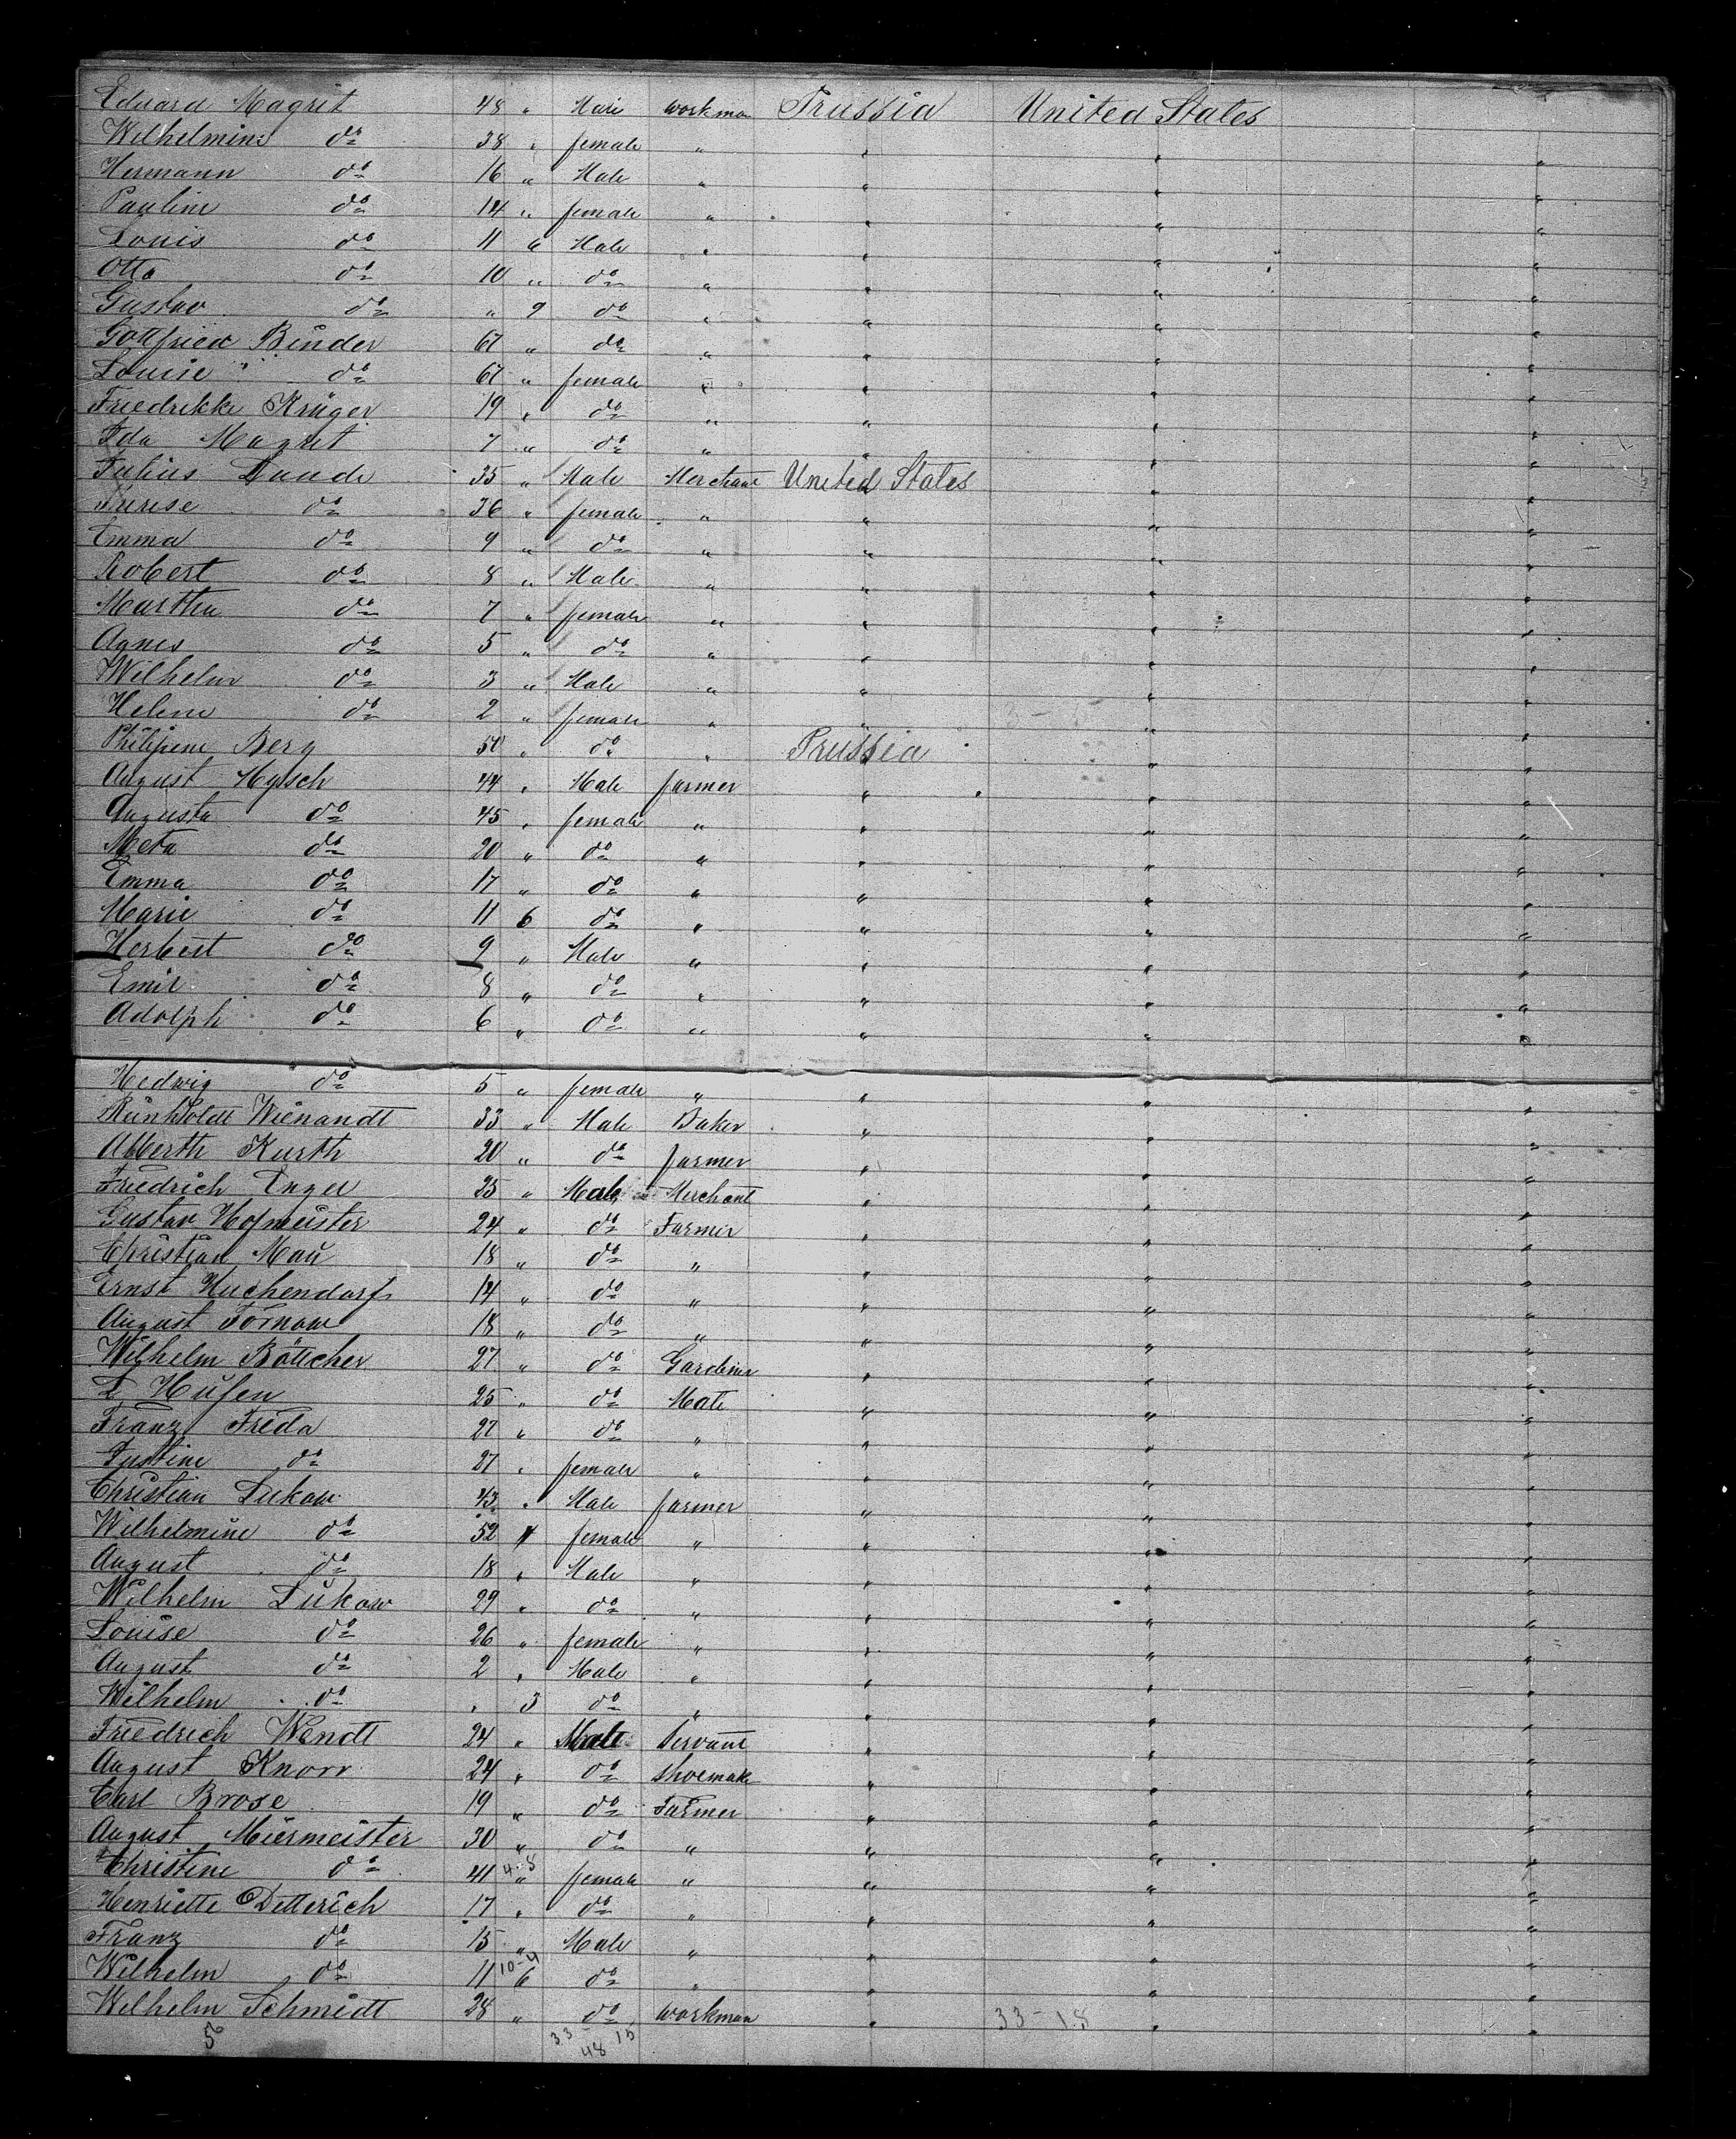 Eduard Magrit 48 " Male workman Prussia United States
Wilhelmine do 38 " female " " " "
Hermann do 16 " Male " " " "
Pauline do 14 " female " " " "
Louis do 11 6 Male " " " "
Otto do 10 " do " " " "
Gustav do " 9 do " " " "
Gottfried Binder 67 " do " " " "
Louise do 67 " female " " " "
Friedrikke Krüger 19 " do " " " "
Ida Magrit 7 " do " " " "
Julius Daude 35 " Male Merchant United States " "
do 36 " female " " " "
Emma do 9 " do " " " "
Robert do 8 " Male " " " "
Martha do 7 " female " " " "
Agnes do 5 " do " " " "
Wilhelm do 3 " Male " " " "
Helene do 2 " female " " " "
Philipene Berg 50 " do " Prussia " "
August Hysch 44 " Male farmer " " "
Augusta do 45 " female " " " "
Meta do 20 " do " " " "
Emma do 17 " do " " " "
Marie do 11 6 do " " " "
Herbert do 9 " Male " " " "
Emil do 8 " do " " " "
Adolph do 6 " do " " " "
Hedwig do 5 " female " " " "
Reinholdt Wienandt 33 " Male Baker " " "
Alberth Kurth 20 " do farmer " " "
Friedrich Engel 25 " Male Merchant " " "
Gustav Hofmeister 24 " do Farmer " " "
Christian Mau 18 " do " " " "
Ernst Huchendorf 14 " do " " " "
August Tornow 18 " do " " " "
Wilhelm Bötticher 27 " do Gardener " " "
Hufen 25 " do Mate " " "
Franz Freda 27 " do " " " "
Justine do 27 " female " " " "
Christian Lukow 43 " Male farmer " " "
Wilhelmine do 52 " female " " " "
August do 18 " Male " " " "
Wilhelm Lukow 29 " do " " " "
Louise do 26 " female " " " "
August do 2 " Male " " " "
Wilhelm do " 3 do " " " "
Friedrich Wendt 24 " Male Servant " " "
August Knorr 24 " do shoemake " " "
Carl Brose 19 " do Farmer " " "
August Miermeister 30 " do " " " "
Christine do 41 4-8 " female " " " "
Henriette Detterich 17 " do " " " "
Franz do 15 " Male " " " "
Wilhelm do 11 10-4 6 do " " " "
Wilhelm Schmidt 28 " do workman " 33-18 " "
5 33 15
48